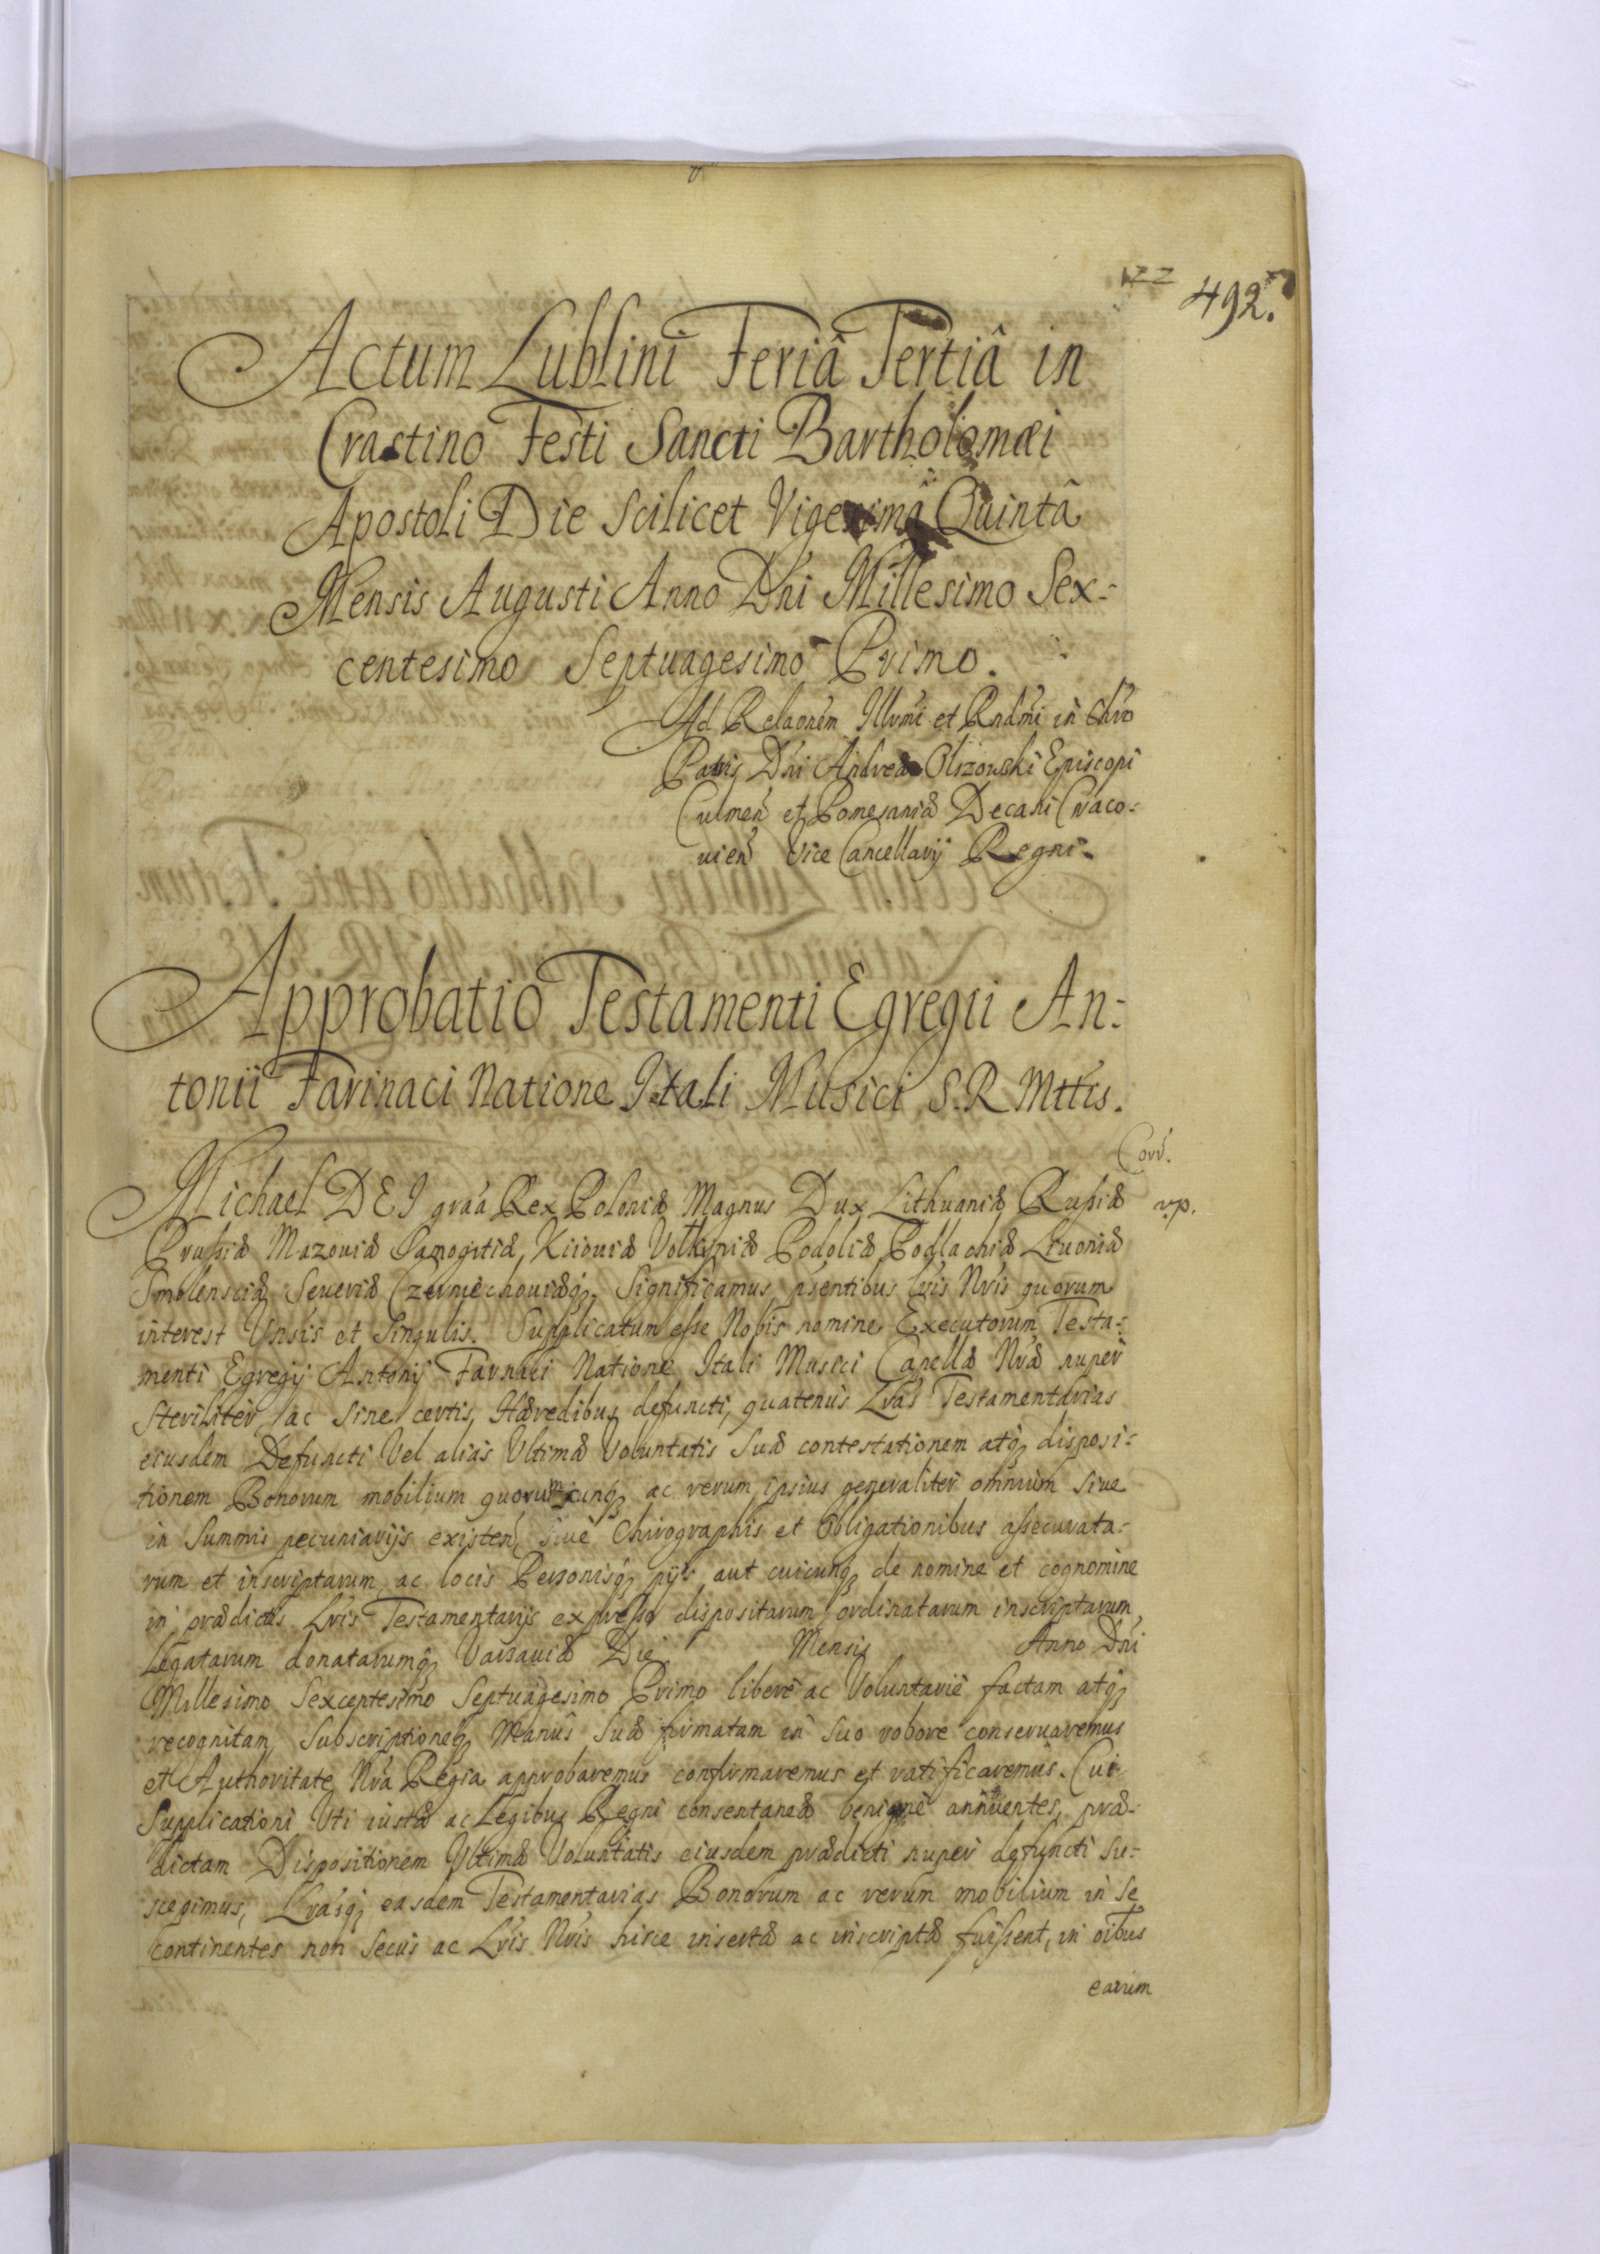 492.
Actum Lublini Feriâ Tertiâ in
Crastino Festi Sancti Bartholomæi
Apostoli Die Scilicet Vigesimâ Quintâ
Mensis Augusti Anno Dni Millesimo Sex-
centesimo Septuagesimo Primo.
Ad Relaonem Illrmi et Rndmi in Chro
Patris Dni Andreæ Olszowski Episcopi
Culmen et Pomesaniæ Decani Craco-
vien Vice Cancellarij Regni.
Approbatio Testamenti Egregii An-
tonii Farinaci Natione Itali Musici S. R. Mttis.
Corr.
Michael DEI graa Rex Poloniæ Magnus Dux Lithuaniæ Russiæ
Prussiæ Mazouiæ Samogitiæ, Kiiouiæ Volhyniæ Podoliæ Podlachiæ Liuoniæ
Smolensciæ Seueriæ Czerniechouiæq. Significamus pñtibus Lris Nris quorum
interest Vnisis et Singulis. Supplicatum esse Nobis nomine Executorum Testa-
menti Egregij Antonij Farnaci Natione Itali Musici Capellæ Nræ nuper
Steriliter ac sine certis Hæredibus defuncti, quatenus Lras Testamentarias
eiusdem Defuncti Vel alias Vltimæ Voluntatis Suæ contestationem atq disposi-
tionem Bonorum mobilium quorumcunq ac rerum ipsius generaliter omnium siue
in Summis pecuniarijs existen siue Chirographis et Obligationibus assecurata-
rum et inscriptarum, ac locis Personisq pijs aut cuicunq de nomine et cognomine
in prædictis Lris Testamentarijs expresso dispositarum ordinatarum inscriptarum
Legatarum donatarumq Varsauiæ Die Mensis Anno Dni
Millesimo Sexcentesimo Septuagesimo Primo liberè ac Voluntariè factam atq
recognitam Subscriptioneq Manûs Suæ firmatam in suo robore conseruaremus
et Authoritate Nra Regia approbaremus confirmaremus et ratificaremus. Cui
Supplicationi Vti iustæ ac Legibus Regni consentaneæ benignè annuentes, præ-
dictam Dispositionem Vltimæ Voluntatis eiusdem prædicti nuper defuncti su-
scepimus, Lrasq easdem Testamentarias Bonorum ac rerum mobilium in se
continentes non secus ac Lris Nris hisce insertæ ac inscriptæ fuissent, in oibus
earum